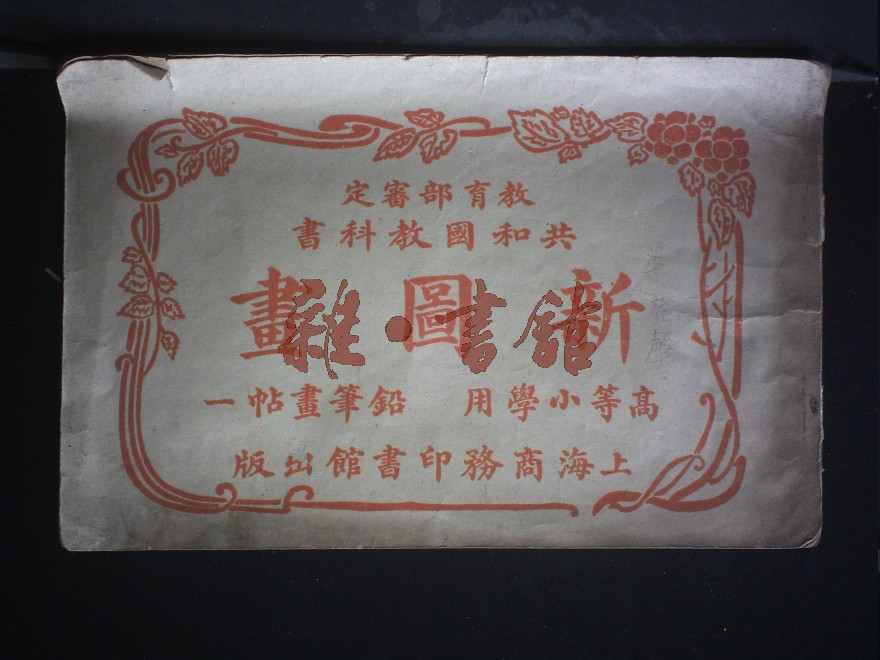 教育部審定
共和國教科書
新圖畫
雜·書館
高等小學用 鉛筆畫帖一
上海商務印書館出版